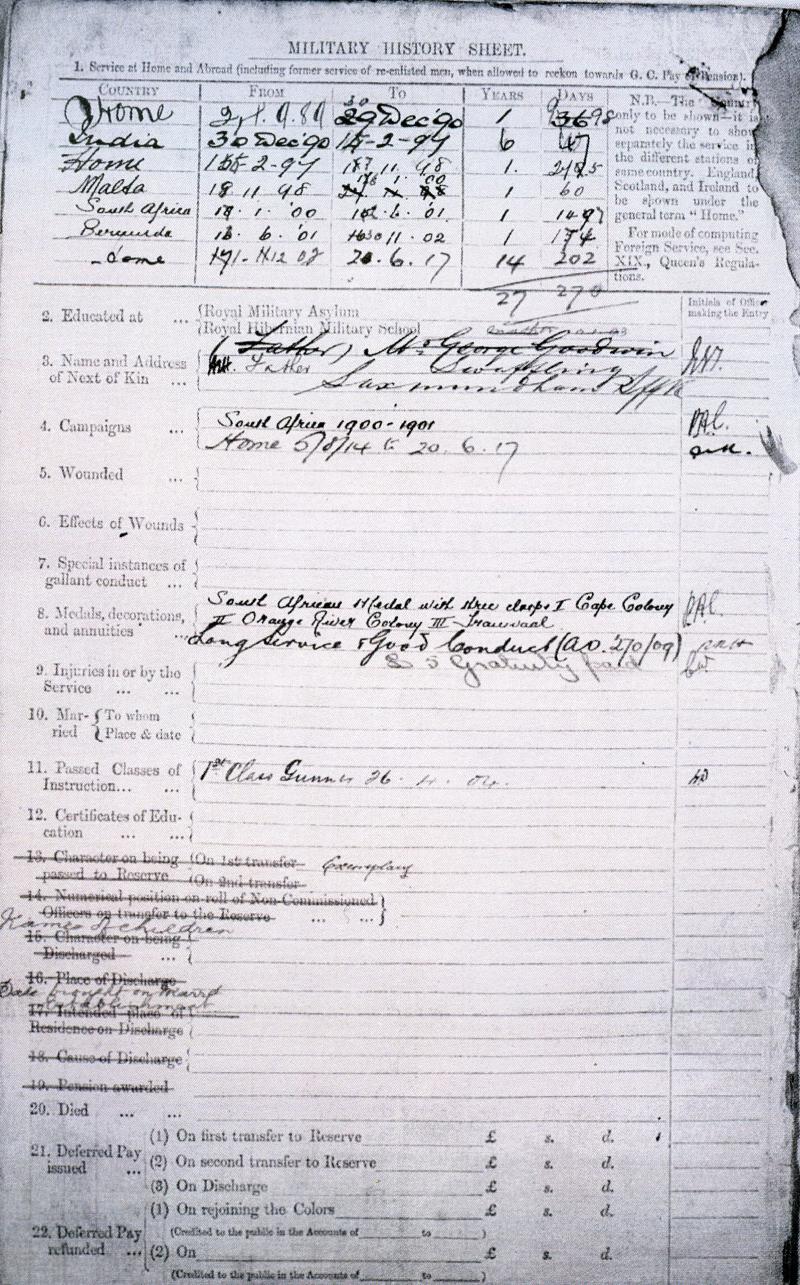 MILITARY HISTORY SHEET.
1. Service at Home and Abroad (including former service of re-enlisted men, when allowed to reckon towards G. C. Pay Pension).
COUNTRY FROM TO YEARS DAYS
Home Dec '90 1
India 30 Dec '90 15-2-97 6
Home 15-2-97 11 98 1.
Malta 18 11 98 1 60
South Africa 1. '00 6. 01 1
Bermuda 6. '01 11. 02 1 174
Home 20. 6. 17 14 202
27 270
N.B.—The "Country"
only to be shown—it is
not necessary to show
separately the service in
the different stations of
same country. England,
Scotland, and Ireland to
be shown under the
general term "Home."
For mode of computing
Foreign Service, see Sec.
XIX., Queen's Regula-
tions.
Initials of Officer
making the Entry
2. Educated at ... Royal Military Asylum
Royal Hibernian Military School
(Father) Mr George Goodwin
3. Name and Address
of Next of Kin ... Father Sweffling
Saxmundham Suffk
4. Campaigns ... South Africa 1900-1901
Home 5/8/14 to 20.6.17
5. Wounded ...
6. Effects of Wounds
7. Special instances of
gallant conduct ...
8. Medals, decorations,
and annuities ... South African Medal with three clasps I Cape Colony
II Orange River Colony III Transvaal
Long Service & Good Conduct (A.O. 270/09)
£5 Gratuity paid
9. Injuries in or by the
Service ... ...
10. Married { To whom
Place & date
11. Passed Classes of
Instruction... ... 1st Class Gunner 26. 4. 04.
12. Certificates of Edu-
cation ... ...
13. Character on being
passed to Reserve (On 1st transfer Exemplary
(On 2nd transfer
14. Numerical position on roll of Non-Commissioned
Officers on transfer to the Reserve ... ...
Names of children
15. Character on being
Discharged ...
16. Place of Discharge
Date brought on Married
Establishment
17. Intended place of
Residence on Discharge
18. Cause of Discharge
19. Pension awarded
20. Died ... ...
21. Deferred Pay
issued ...
(1) On first transfer to Reserve £ s. d.
(2) On second transfer to Reserve £ s. d.
(3) On Discharge £ s. d.
22. Deferred Pay
refunded ...
(1) On rejoining the Colors £ s. d.
(Credited to the public in the Accounts of to )
(2) On £ s. d.
(Credited to the public in the Accounts of to )